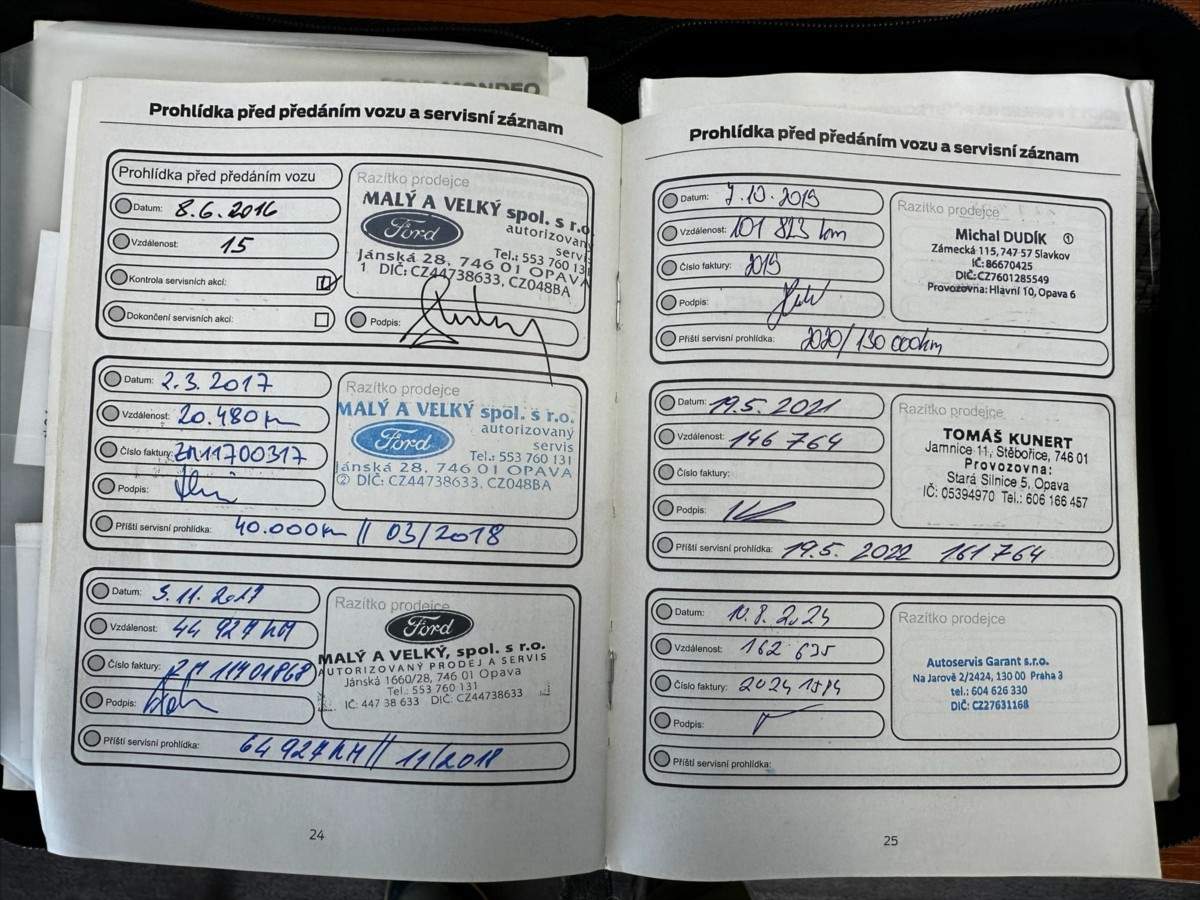 FORD MONDEO
Prohlídka před předáním vozu a servisní záznam
Prohlídka před předáním vozu
Datum: 8.6.2016
Vzdálenost: 15
Kontrola servisních akcí:
Dokončení servisních akcí:
Razítko prodejce
MALÝ A VELKÝ spol. s r.o.
Ford
autorizovaný
servis
Tel.: 553 760 131
Jánská 28, 746 01 OPAVA
1 DIČ: CZ44738633, CZ048BA
Podpis:
Datum: 2.3.2017
Vzdálenost: 20.480km
Číslo faktury: ZM11700317
Podpis:
Příští servisní prohlídka: 40.000km // 03/2018
Razítko prodejce
MALÝ A VELKÝ spol. s r.o.
Ford
autorizovaný
servis
Tel.: 553 760 131
Jánská 28, 746 01 OPAVA
② DIČ: CZ44738633, CZ048BA
Datum: 3.11.2017
Vzdálenost: 44 927 KM
Číslo faktury:
Podpis:
Příští servisní prohlídka: 64 927 KM // 11/2018
Razítko prodejce
Ford
MALÝ A VELKÝ, spol. s r.o.
AUTORIZOVANÝ PRODEJ A SERVIS
Jánská 1660/28, 746 01 Opava
Tel.: 553 760 131
IČ: 447 38 633 DIČ: CZ44738633
24
Prohlídka před předáním vozu a servisní záznam
Datum: 7.10.2019
Vzdálenost: 101 823 km
Číslo faktury: 2019
Podpis:
Příští servisní prohlídka: 2020/130 000km
Razítko prodejce
Michal DUDÍK ①
Zámecká 115, 747 57 Slavkov
IČ: 86670425
DIČ: CZ7601285549
Provozovna: Hlavní 10, Opava 6
Datum: 19.5.2021
Vzdálenost: 146 764
Číslo faktury:
Podpis:
Příští servisní prohlídka: 19.5.2022 161 764
Razítko prodejce
TOMÁŠ KUNERT
Jamnice 11, Stěbořice, 746 01
Provozovna:
Stará Silnice 5, Opava
IČ: 05394970 Tel.: 606 166 457
Datum: 10.8.2024
Vzdálenost: 162 635
Číslo faktury: 2024 1584
Podpis:
Příští servisní prohlídka:
Razítko prodejce
Autoservis Garant s.r.o.
Na Jarově 2/2424, 130 00 Praha 3
tel.: 604 626 330
DIČ: CZ27631168
25